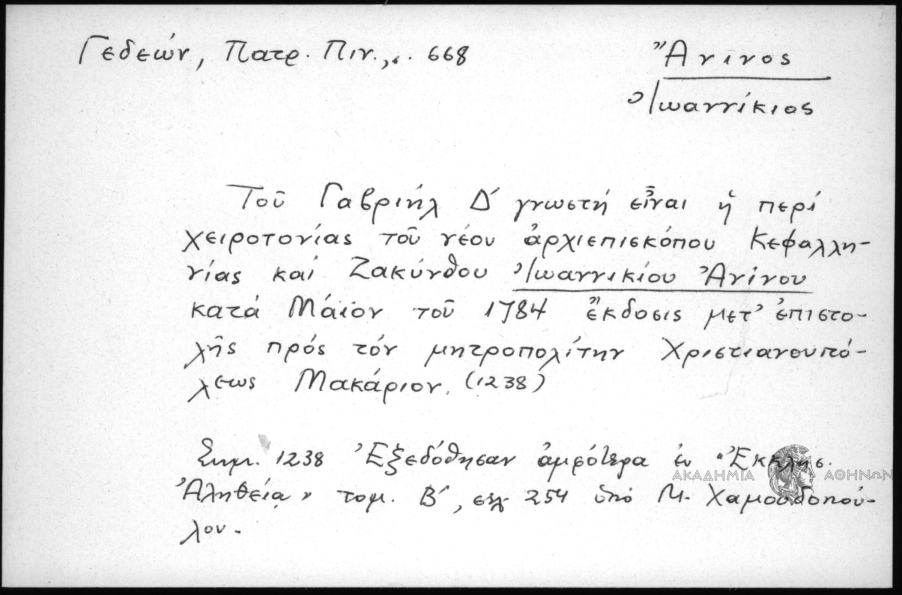 Γεδεών, Πατρ. Πιν., . 668
Ἄνινος
Ἰωαννίκιος
Τοῦ Γαβριήλ Δ΄ γνωστή εἶναι ἡ περί
χειροτονίας τοῦ νέου ἀρχιεπισκόπου Κεφαλλη-
νίας καί Ζακύνθου Ἰωαννικίου Ἀνίνου
κατά Μάϊον τοῦ 1784 ἔκδοσις μετ' ἐπιστο-
λῆς πρός τόν μητροπολίτην Χριστιανουπό-
λεως Μακάριον. (1238)
Σημ. 1238 Ἐξεδόθησαν ἀμφότερα ἐν "Ἐκκλησ.
Ἀληθείᾳ" τομ. Β΄, σελ 254 ὑπό Μ. Χαμουδοπού-
λου.
ΑΚΑΔΗΜΙΑ ΑΘΗΝΩΝ